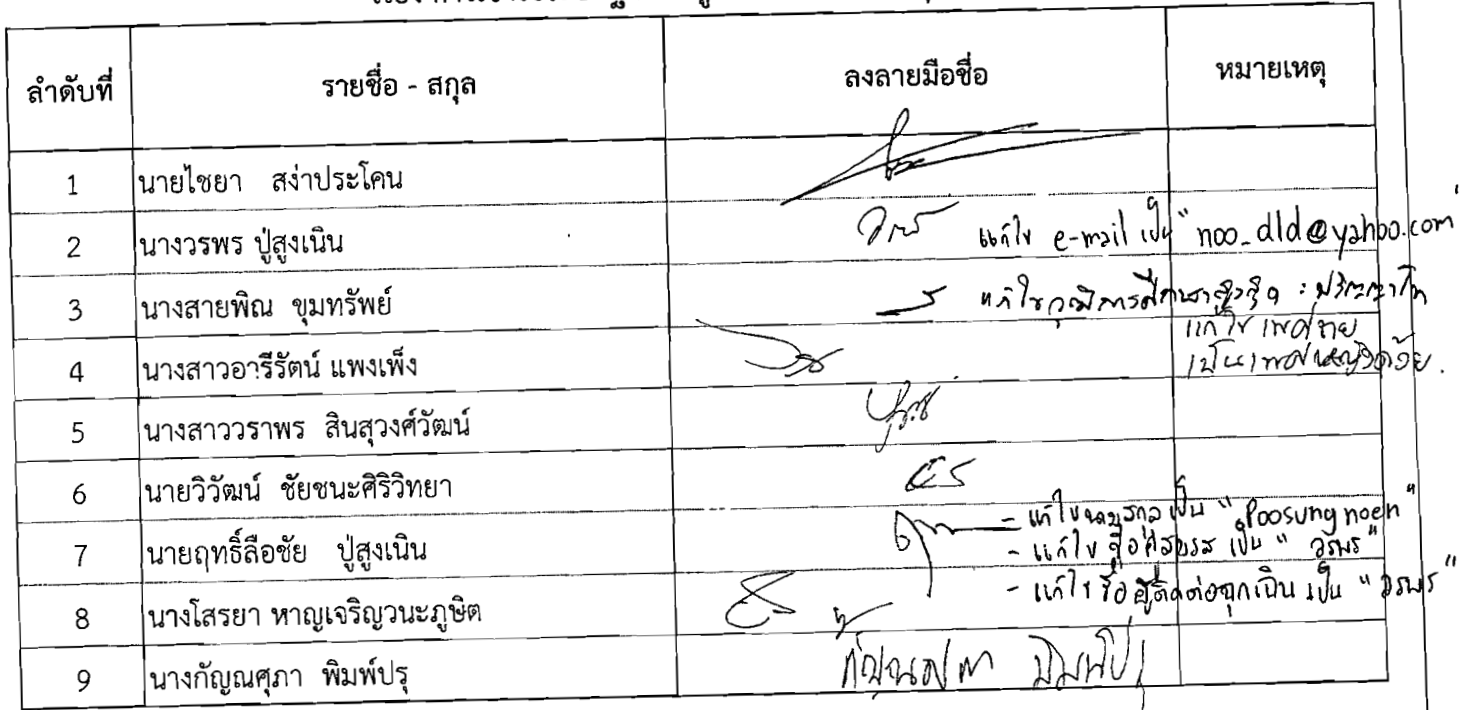 ลำดับที่ รายชื่อ - สกุล ลงลายมือชื่อ หมายเหตุ
1 นายไชยา สง่าประโคน
2 นางวรพร ปู่สูงเนิน แก้ไข e-mail เป็น "noo_dld@yahoo.com"
3 นางสายพิณ ขุมทรัพย์ แก้ไขวุฒิการศึกษาสูงสุด : ปริญญาโท
แก้ไขเพศชาย
4 นางสาวอารีรัตน์ แพงเพ็ง เป็นเพศหญิงด้วย.
5 นางสาววราพร สินสุวงศ์วัฒน์
6 นายวิวัฒน์ ชัยชนะศิริวิทยา
- แก้ไขนามสกุลเป็น "Poosungnoen"
7 นายฤทธิ์ลือชัย ปู่สูงเนิน - แก้ไขชื่อคู่สมรส เป็น "วรพร"
8 นางโสรยา หาญเจริญวนะภูษิต - แก้ไขชื่อผู้ติดต่อฉุกเฉิน เป็น "วรพร"
9 นางกัญณศุภา พิมพ์ปรุ กัญณศุภา พิมพ์ปรุ